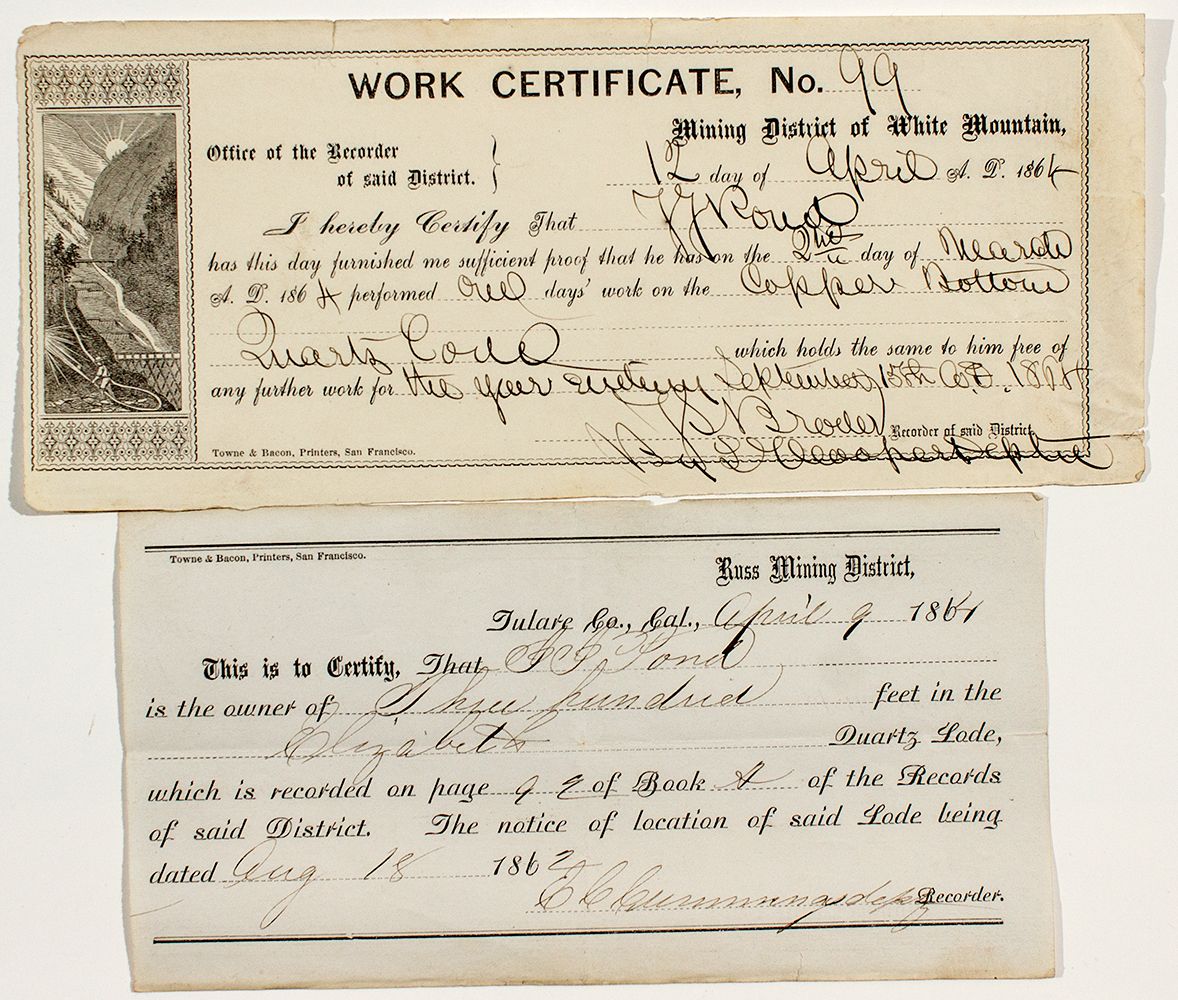 WORK CERTIFICATE, No. 99
Mining District of White Mountain,
Office of the Recorder
of said District.
12 day of April A. D. 1864
I hereby Certify That J J Pond
has this day furnished me sufficient proof that he has on the 2nd day of March
A. D. 1864 performed One days' work on the Copper Bottom
Quartz Lode which holds the same to him free of
any further work for the year ending September 15th A.D. 1864
Recorder of said District.
By Cooper Deputy
Towne & Bacon, Printers, San Francisco.
Towne & Bacon, Printers, San Francisco.
Russ Mining District,
Tulare Co., Cal., April 9 1864
This is to Certify, That Pond
is the owner of Three hundred feet in the
Elizabeth Quartz Lode,
which is recorded on page 92 of Book A of the Records
of said District. The notice of location of said Lode being
dated Aug 18 1862
E C Cummings depty Recorder.